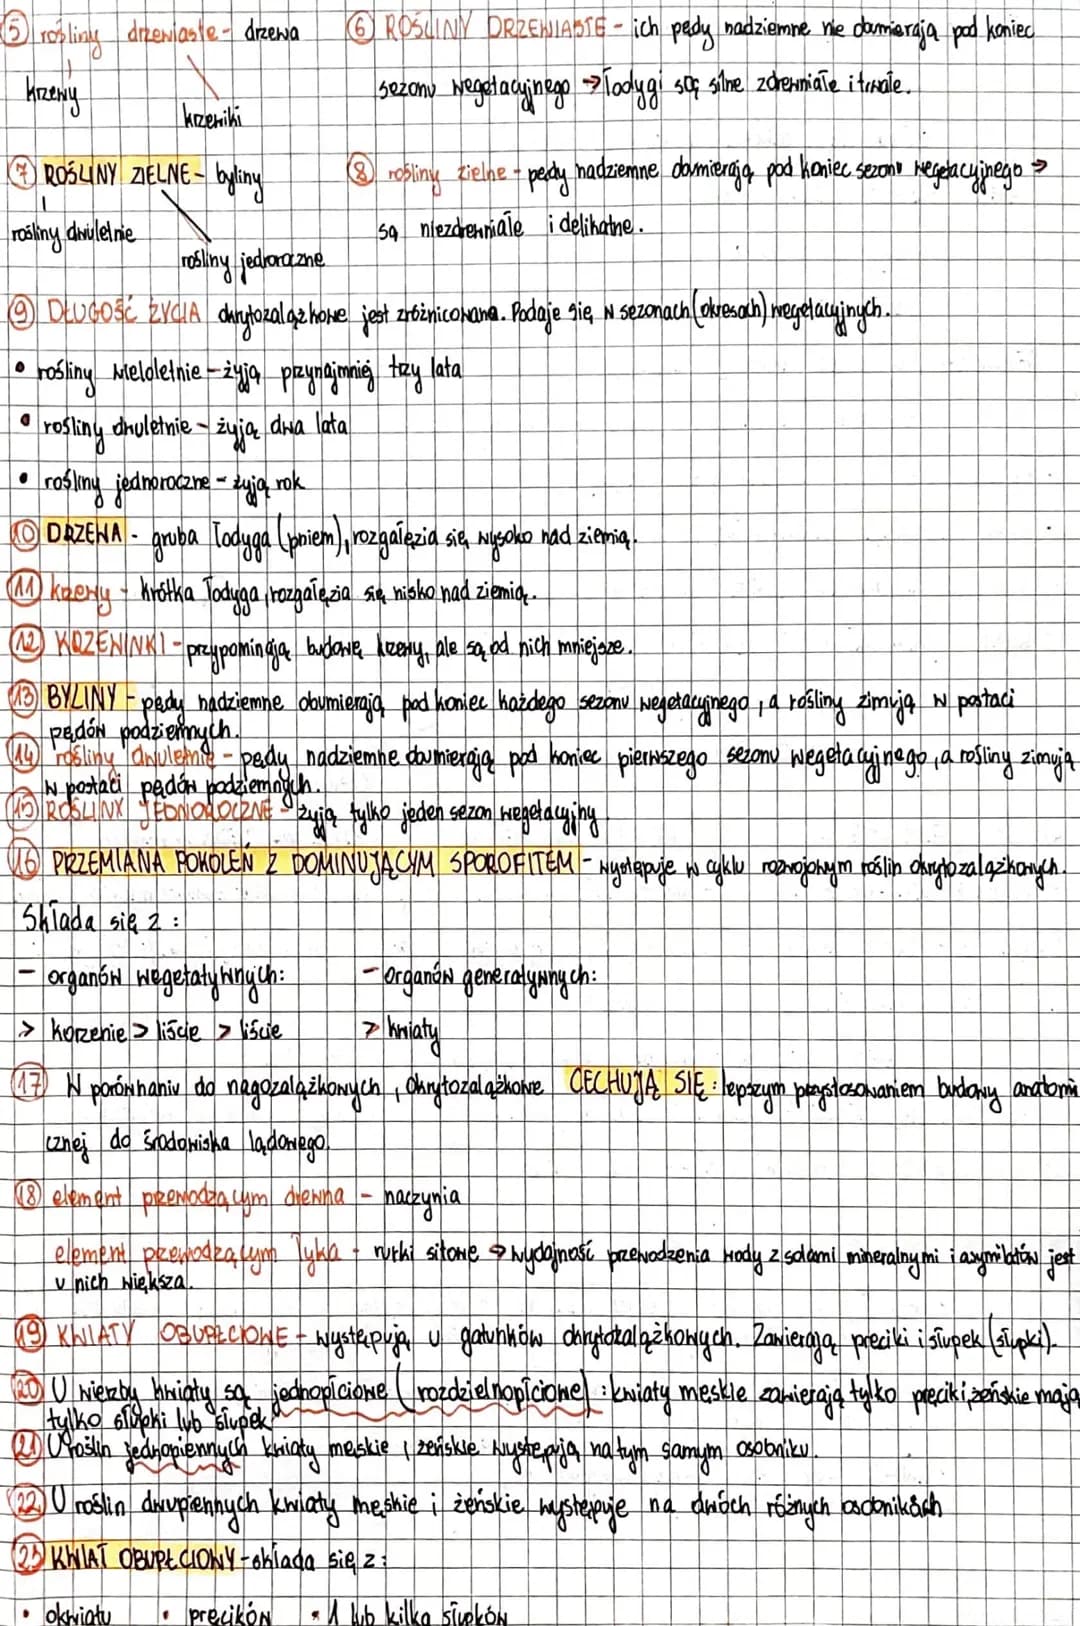 5 rośliny drzewiaste - drzewa
krzewy
krzewiki
6 ROŚLINY DRZEWIASTE - ich pędy nadziemne nie obumierają pod koniec
sezonu wegetacyjnego → łodygi są silne zdrewniałe i trwałe.
7 ROŚLINY ZIELNE - byliny
rośliny dwuletnie
rośliny jednoroczne
8 rośliny zielne - pędy nadziemne obumierają pod koniec sezonu wegetacyjnego →
są niezdrewniałe i delikatne.
9 DŁUGOŚĆ ŻYCIA okrytozalążkowe jest zróżnicowana. Podaje się w sezonach (okresach) wegetacyjnych.
• rośliny wieloletnie - żyją przynajmniej trzy lata
• rośliny dwuletnie - żyją dwa lata
• rośliny jednoroczne - żyją rok
10 DRZEWA - gruba łodyga (pniem), rozgałęzia się wysoko nad ziemią.
11 krzewy - krótka łodyga, rozgałęzia się nisko nad ziemią.
12 KRZEWINKI - przypominają budowę krzewy, ale są od nich mniejsze.
13 BYLINY - pędy nadziemne obumierają pod koniec każdego sezonu wegetacyjnego, a rośliny zimują w postaci
pędów podziemnych.
14 rośliny dwuletnie - pędy nadziemne obumierają pod koniec pierwszego sezonu wegetacyjnego, a rośliny zimują
w postaci pędów podziemnych.
15 ROŚLINY JEDNOROCZNE - żyją tylko jeden sezon wegetacyjny
16 PRZEMIANA POKOLEŃ Z DOMINUJĄCYM SPOROFITEM - występuje w cyklu rozwojowym roślin okrytozalążkowych.
Składa się z:
- organów wegetatywnych: - organów generatywnych:
> korzenie > liście > liście > kwiaty
17 W porównaniu do nagozalążkowych, okrytozalążkowe CECHUJĄ SIĘ: lepszym przystosowaniem budowy anatomi
cznej do środowiska lądowego.
18 element przewodzącym drewna - naczynia
element przewodzącym łyka - rurki sitowe → wydajność przewodzenia wody z solami mineralnymi i asymilatów jest
u nich większa.
19 KWIATY OBUPŁCIOWE - występują u gatunków okrytozalążkowych. Zawierają pręciki i słupek (słupki).
20 U wierzby kwiaty są jednopłciowe (rozdzielnopłciowe): kwiaty męskie zawierają tylko pręciki, żeńskie mają
tylko słupki lub słupek
21 U roślin jednopiennych kwiaty męskie i żeńskie występują na tym samym osobniku.
22 U roślin dwupiennych kwiaty męskie i żeńskie występuje na dwóch różnych osobnikach
23 KWIAT OBUPŁCIOWY - składa się z:
• okwiatu • pręcików • 1 lub kilka słupków